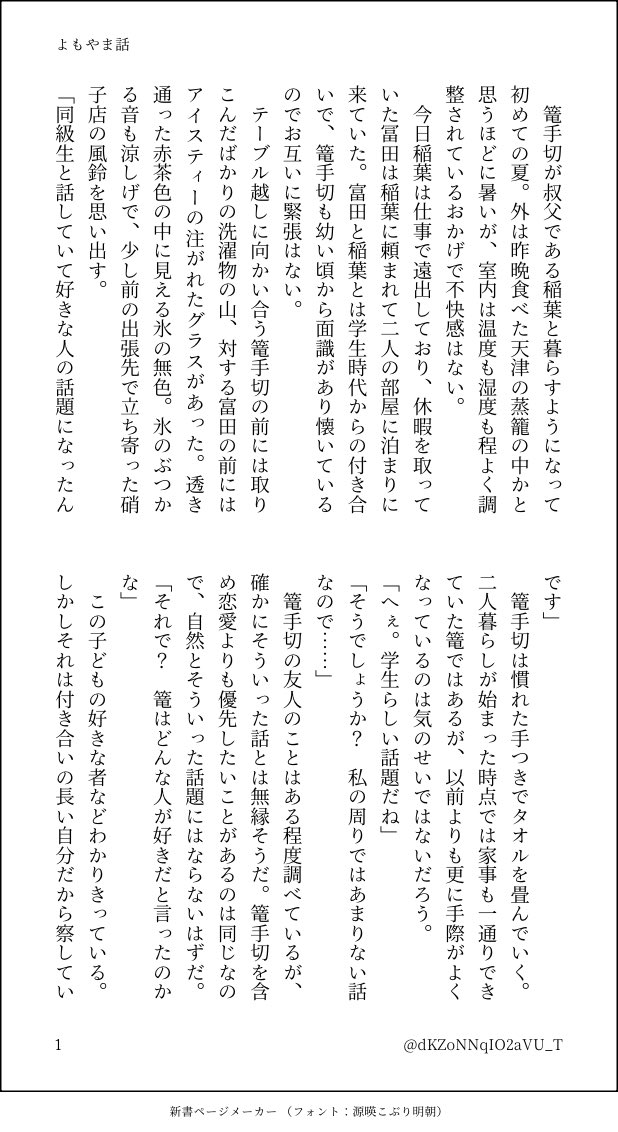 よもやま話
　篭手切が叔父である稲葉と暮らすようになって
初めての夏。外は昨晩食べた天津の蒸籠の中かと
思うほどに暑いが、室内は温度も湿度も程よく調
整されているおかげで不快感はない。
　今日稲葉は仕事で遠出しており、休暇を取って
いた冨田は稲葉に頼まれて二人の部屋に泊まりに
来ていた。富田と稲葉とは学生時代からの付き合
いで、篭手切も幼い頃から面識があり懐いている
のでお互いに緊張はない。
　テーブル越しに向かい合う篭手切の前には取り
こんだばかりの洗濯物の山、対する富田の前には
アイスティーの注がれたグラスがあった。透き
通った赤茶色の中に見える氷の無色。氷のぶつか
る音も涼しげで、少し前の出張先で立ち寄った硝
子店の風鈴を思い出す。
「同級生と話していて好きな人の話題になったん
です」
　篭手切は慣れた手つきでタオルを畳んでいく。
二人暮らしが始まった時点では家事も一通りでき
ていた篭ではあるが、以前よりも更に手際がよく
なっているのは気のせいではないだろう。
「へぇ。学生らしい話題だね」
「そうでしょうか？　私の周りではあまりない話
なので……」
　篭手切の友人のことはある程度調べているが、
確かにそういった話とは無縁そうだ。篭手切を含
め恋愛よりも優先したいことがあるのは同じなの
で、自然とそういった話題にはならないはずだ。
「それで？　篭はどんな人が好きだと言ったのか
な」
　この子どもの好きな者などわかりきっている。
しかしそれは付き合いの長い自分だから察してい
1
@dKZoNNqIO2aVU_T
新書ページメーカー（フォント：源暎こぶり明朝）